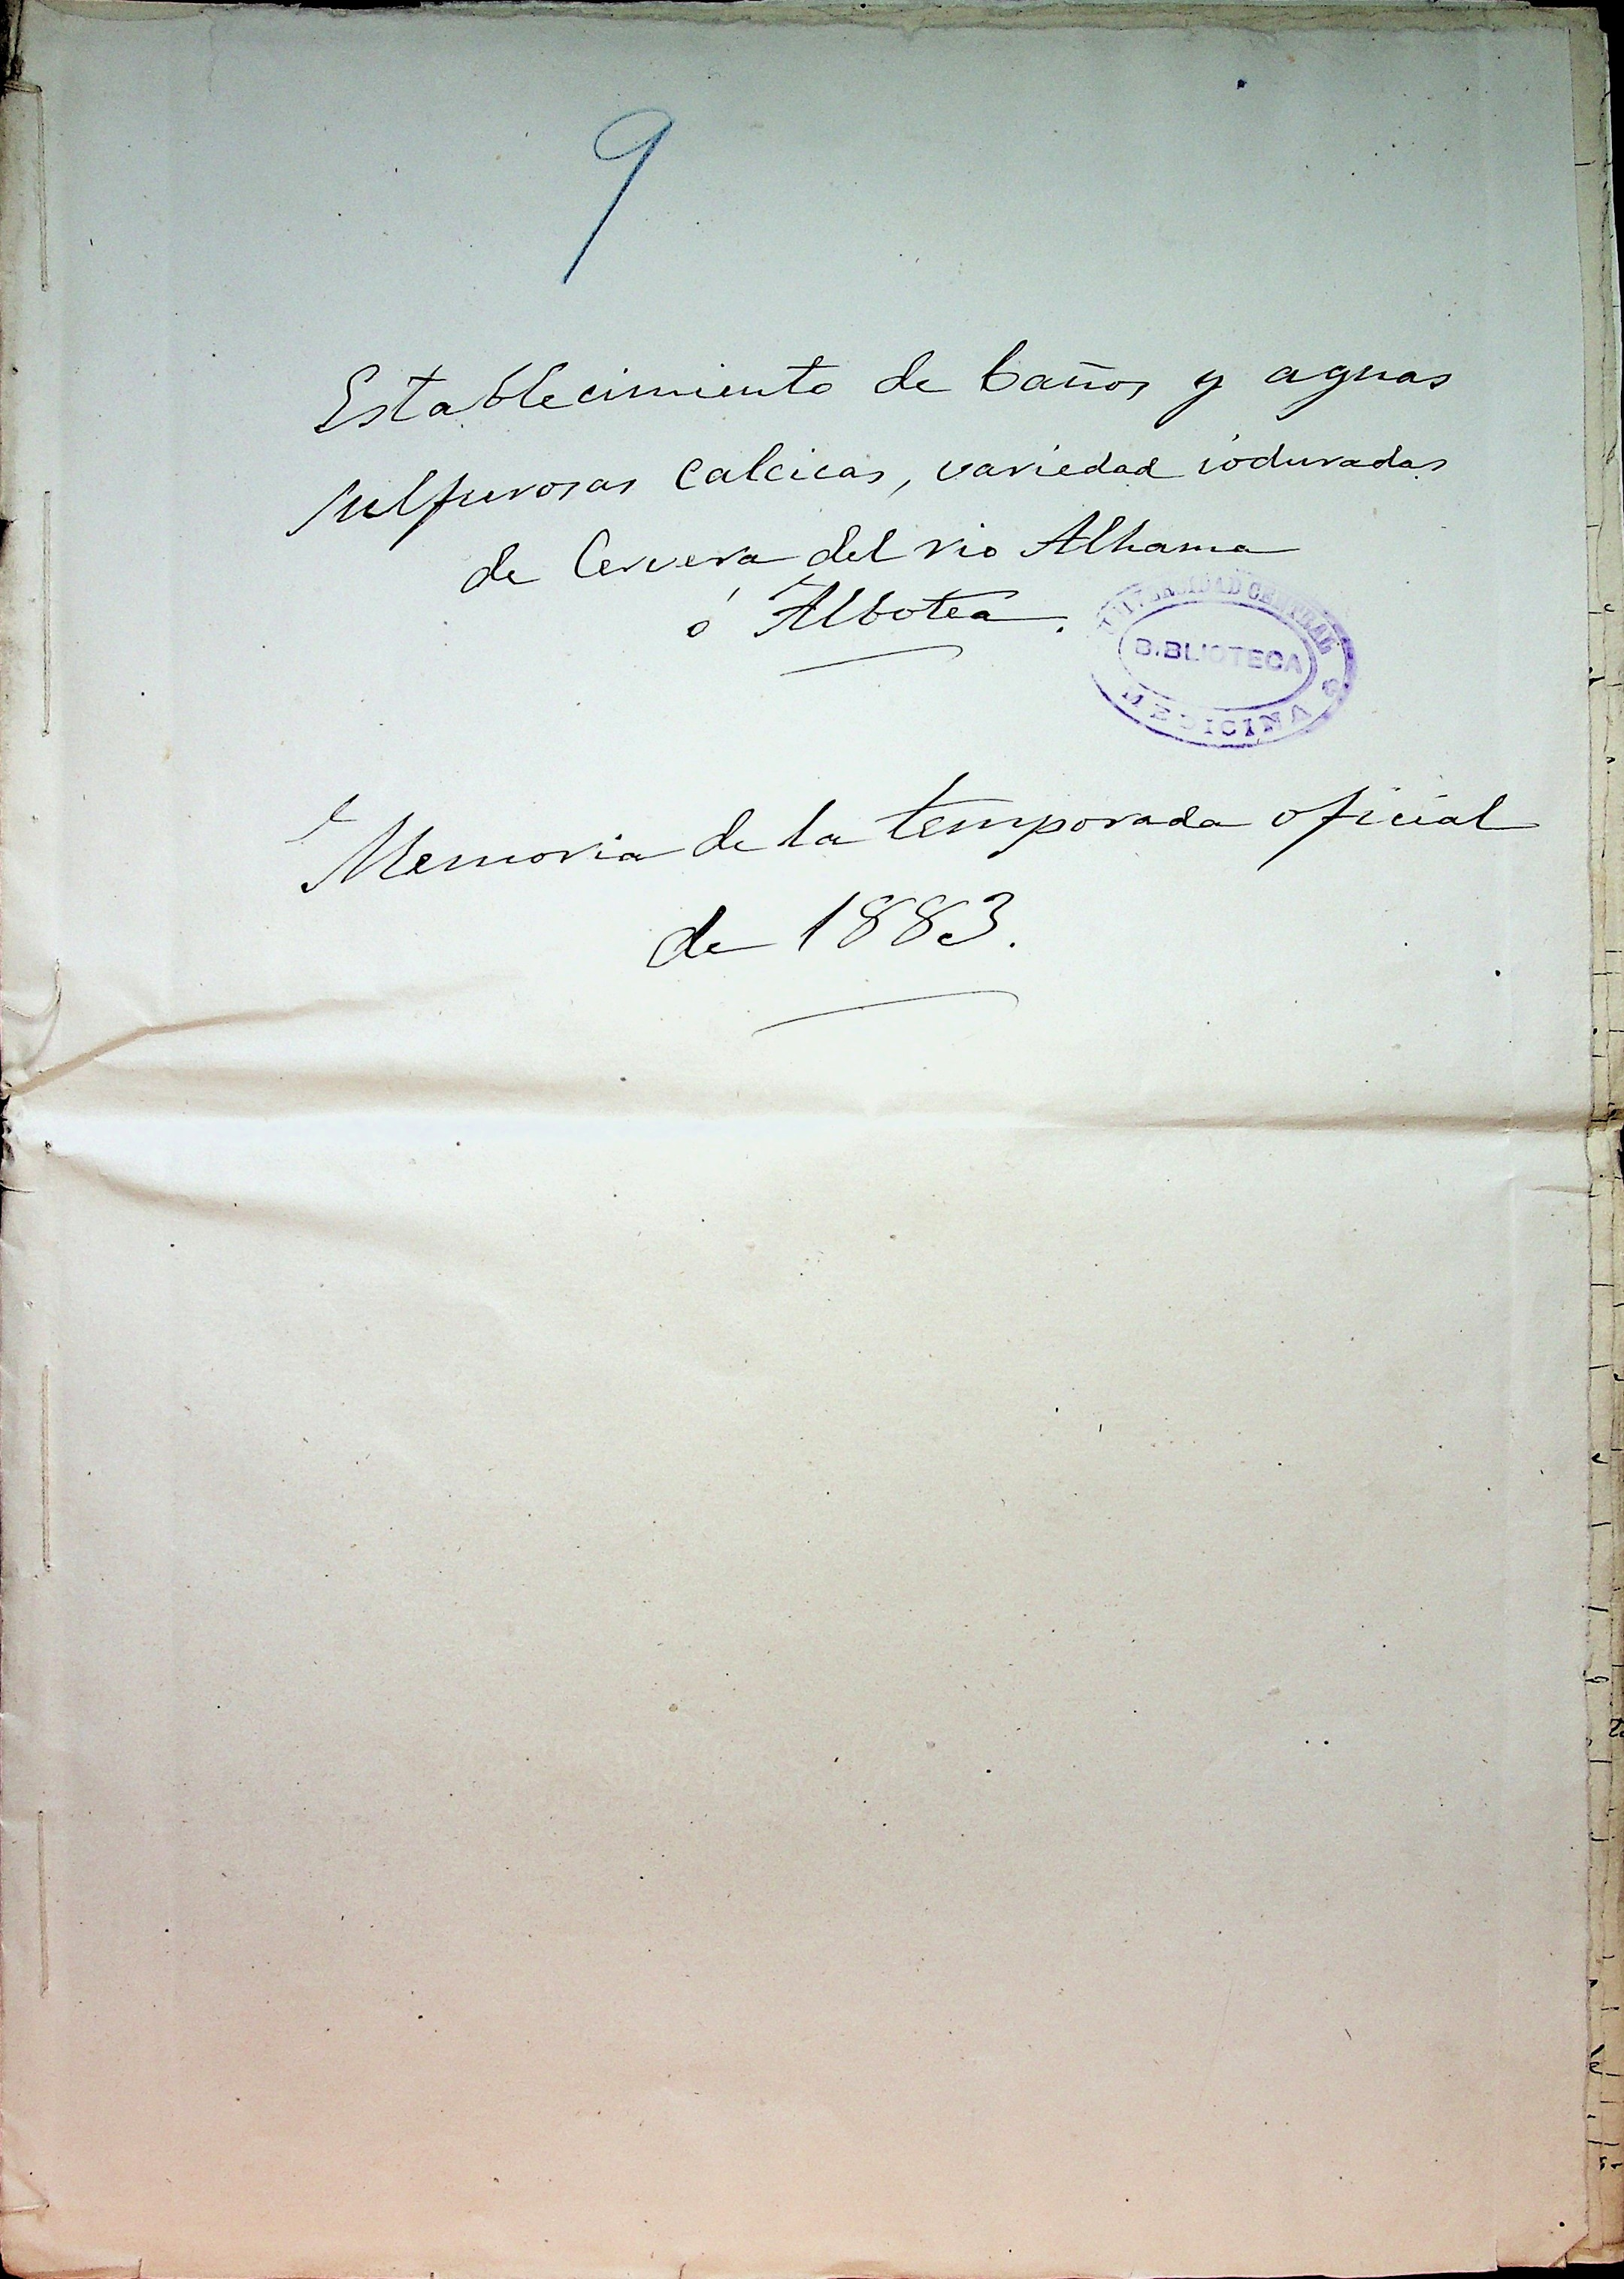 9
Establecimiento de baños y aguas
sulfurosas calcicas, variedad ioduradas
de Cervera del rio Alhama
ó Albotea.
UNIVERSIDAD CENTRAL
BIBLIOTECA
MEDICINA
Memoria de la temporada oficial
de 1883.